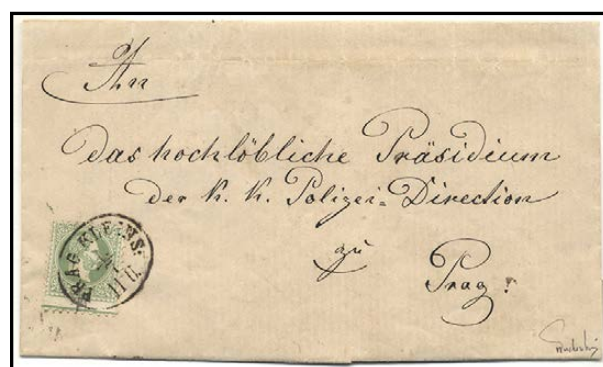 An
das hochlöbliche Präsidium
der k. k. Polizei-Direction
zu
Prag.
PRAG KLEINS:
11 U.